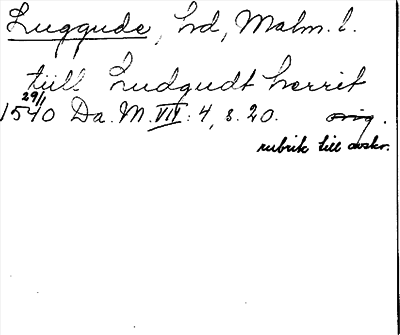 Luggude, hd, Malm. l.
tiill Ludgudt herrit
29/1
1540 Da. M. VII: 4, s. 20. orig.
rubrik till avskr.